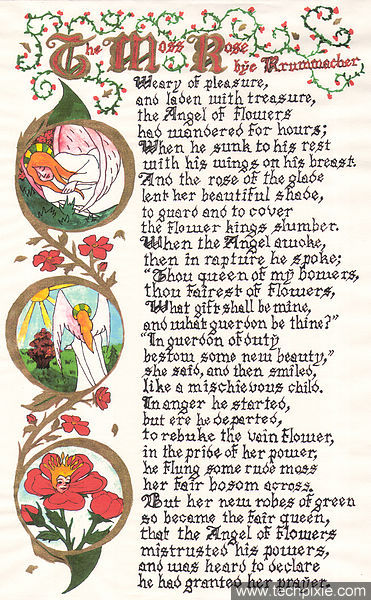 The Moss Rose
bye Krummacher
Weary of pleasure,
and laden with treasure,
the Angel of Flowers
had wandered for hours;
When he sunk to his rest
with his wings on his breast.
And the rose of the glade
lent her beautiful shade,
to guard and to cover
the flower kings slumber.
When the Angel awoke,
then in rapture he spoke;
"Thou queen of my bowers,
thou fairest of Flowers,
What gift shall be mine,
and what guerdon be thine?"
"In guerdon of duty
bestow some new beauty,"
she said, and then smiled,
like a mischievous child.
In anger he started,
but ere he departed,
to rebuke the vain flower,
in the pride of her power,
he flung some rude moss
her fair bosom across.
But her new robes of green
so became the fair queen,
that the Angel of Flowers
mistrusted his powers,
and was heard to declare
he had granted her prayer.
www.techpixie.com